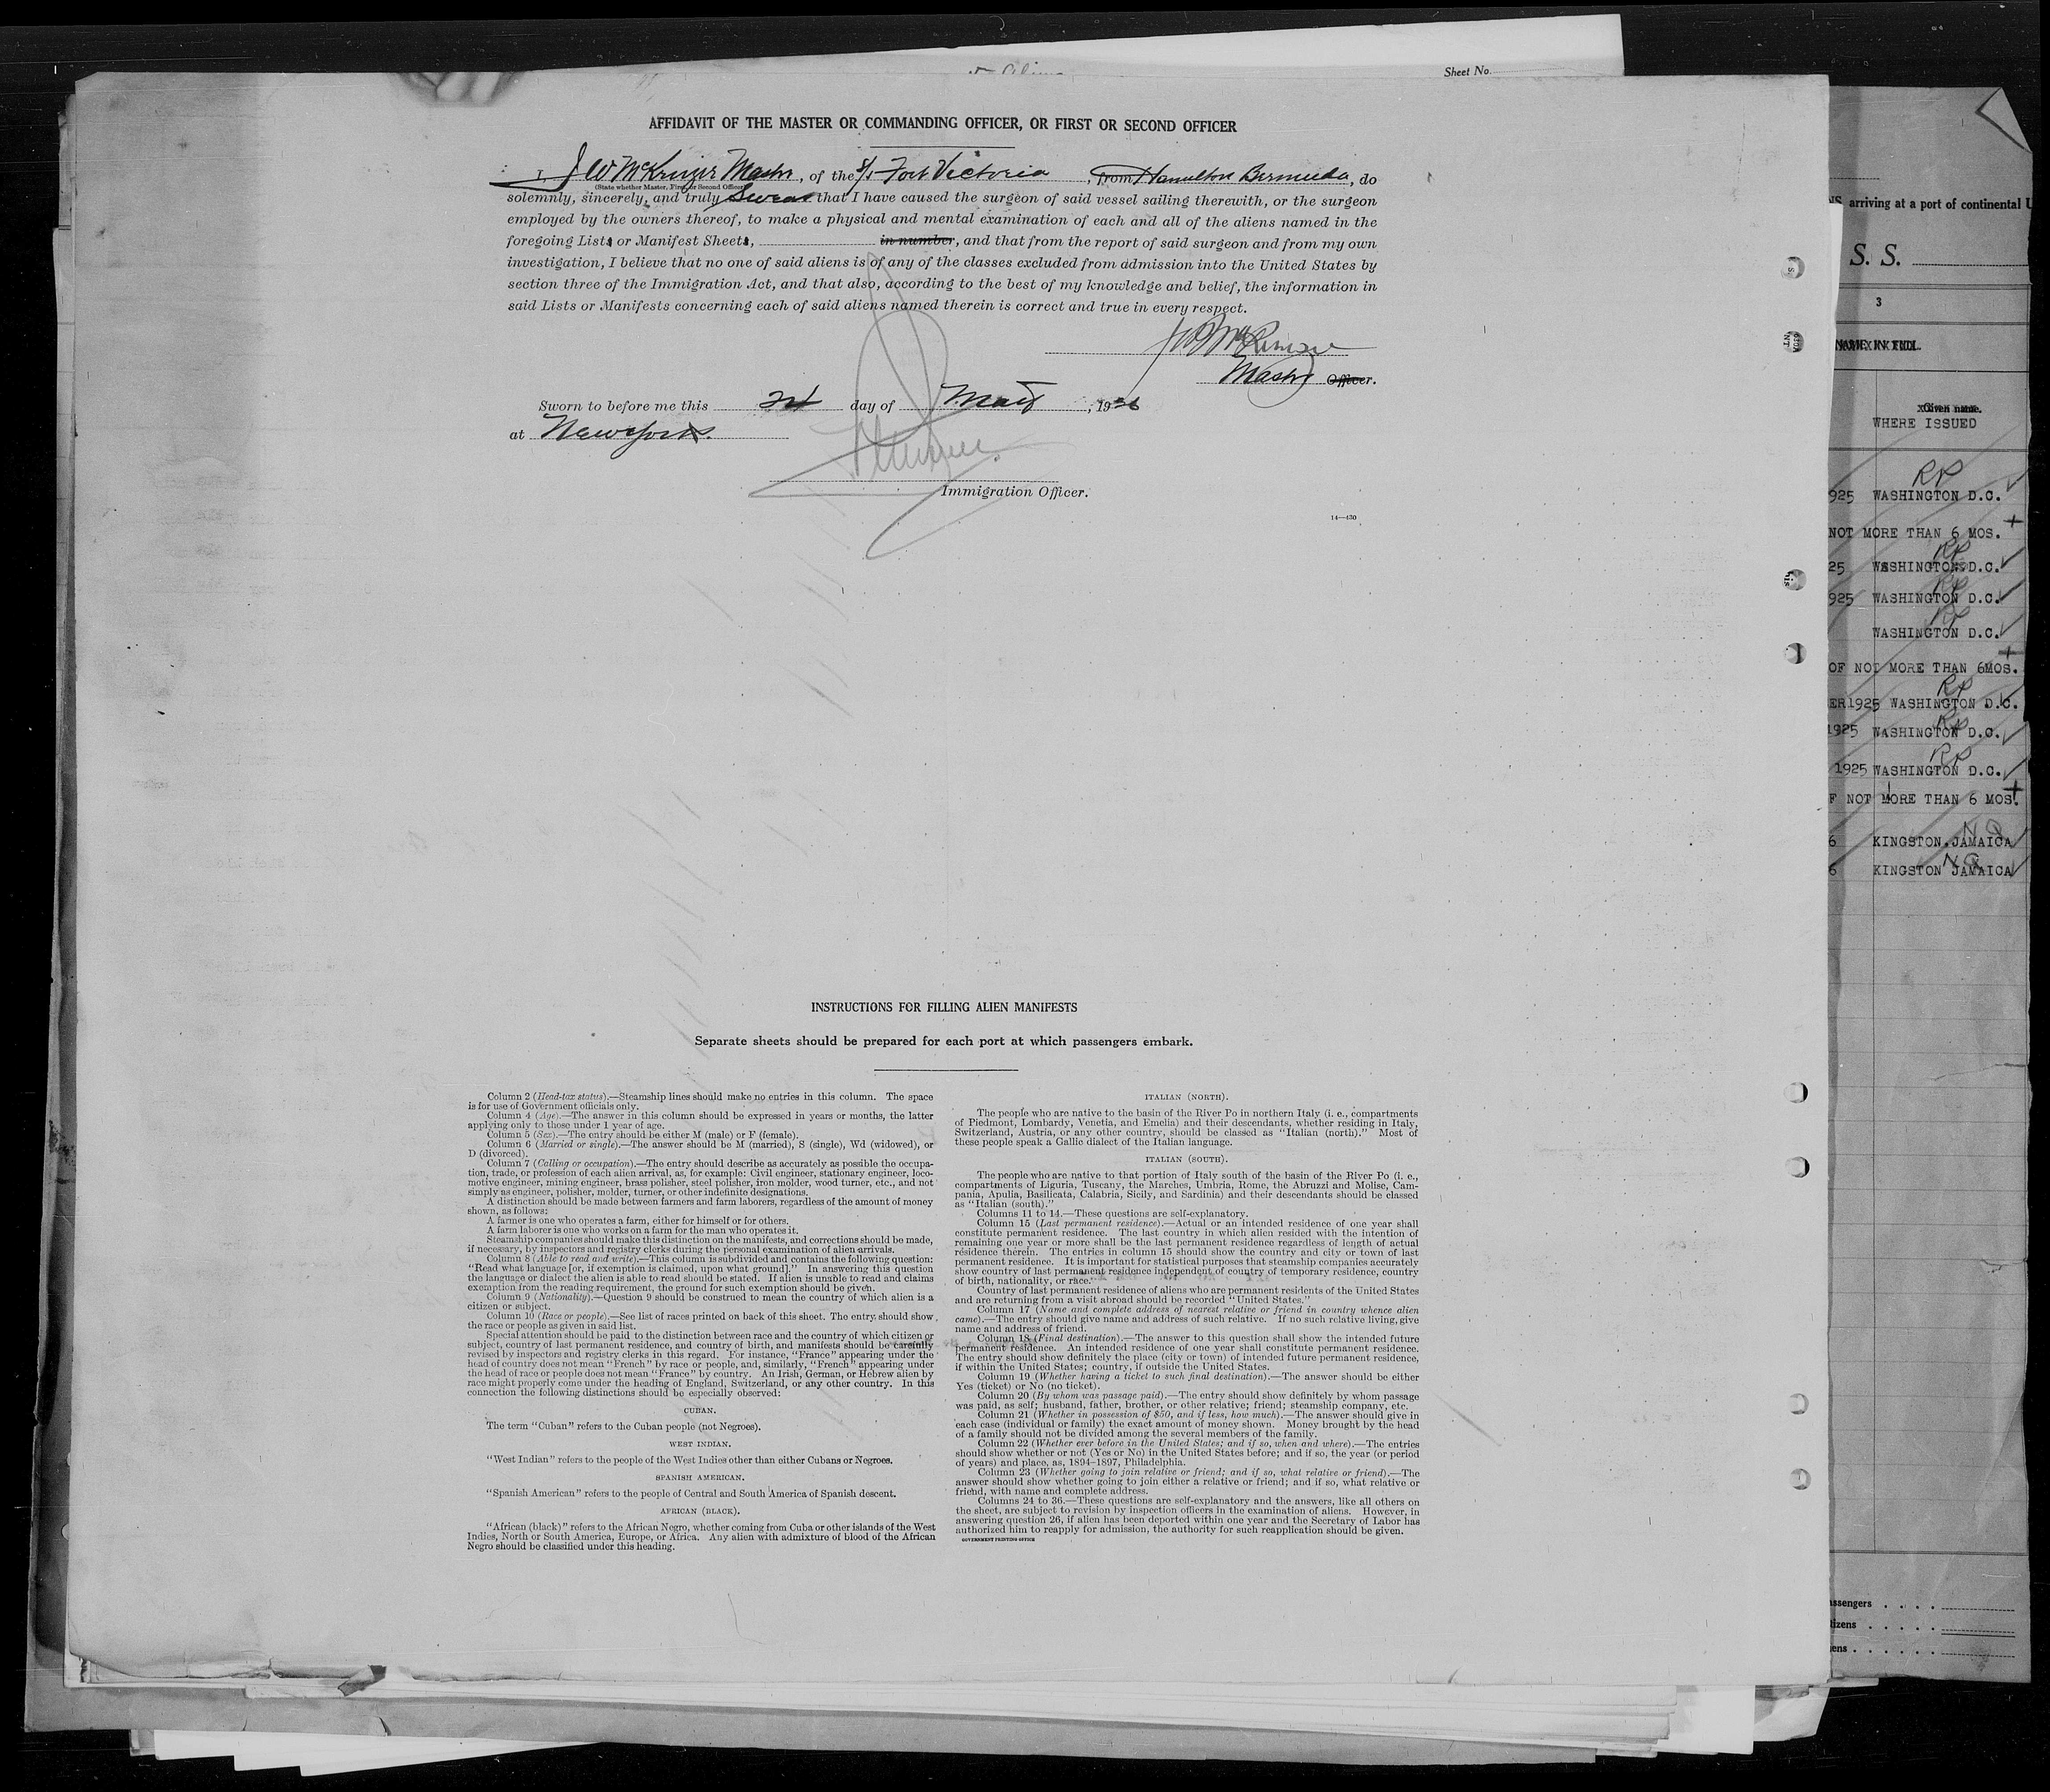 Sheet No.
AFFIDAVIT OF THE MASTER OR COMMANDING OFFICER, OR FIRST OR SECOND OFFICER
I, J W Master, of the S/S Fort Victoria, from Hamilton Bermuda, do
(State whether Master, First, or Second Officer)
solemnly, sincerely, and truly Swear that I have caused the surgeon of said vessel sailing therewith, or the surgeon
employed by the owners thereof, to make a physical and mental examination of each and all of the aliens named in the
foregoing Lists or Manifest Sheets, in number, and that from the report of said surgeon and from my own
investigation, I believe that no one of said aliens is of any of the classes excluded from admission into the United States by
section three of the Immigration Act, and that also, according to the best of my knowledge and belief, the information in
said Lists or Manifests concerning each of said aliens named therein is correct and true in every respect.
Master Officer.
Sworn to before me this day of May, 1926
at New York.
Immigration Officer.
14—430
INSTRUCTIONS FOR FILLING ALIEN MANIFESTS
Separate sheets should be prepared for each port at which passengers embark.
Column 2 (Head-tax status).—Steamship lines should make no entries in this column. The space
is for use of Government officials only.
Column 4 (Age).—The answer in this column should be expressed in years or months, the latter
applying only to those under 1 year of age.
Column 5 (Sex).—The entry should be either M (male) or F (female).
Column 6 (Married or single).—The answer should be M (married), S (single), Wd (widowed), or
D (divorced).
Column 7 (Calling or occupation).—The entry should describe as accurately as possible the occupa-
tion, trade, or profession of each alien arrival, as, for example: Civil engineer, stationary engineer, loco-
motive engineer, mining engineer, brass polisher, steel polisher, iron molder, wood turner, etc., and not
simply as engineer, polisher, molder, turner, or other indefinite designations.
A distinction should be made between farmers and farm laborers, regardless of the amount of money
shown, as follows:
A farmer is one who operates a farm, either for himself or for others.
A farm laborer is one who works on a farm for the man who operates it.
Steamship companies should make this distinction on the manifests, and corrections should be made,
if necessary, by inspectors and registry clerks during the personal examination of alien arrivals.
Column 8 (Able to read and write).—This column is subdivided and contains the following question:
"Read what language [or, if exemption is claimed, upon what ground]." In answering this question
the language or dialect the alien is able to read should be stated. If alien is unable to read and claims
exemption from the reading requirement, the ground for such exemption should be given.
Column 9 (Nationality).—Question 9 should be construed to mean the country of which alien is a
citizen or subject.
Column 10 (Race or people).—See list of races printed on back of this sheet. The entry should show
the race or people as given in said list.
Special attention should be paid to the distinction between race and the country of which citizen or
subject, country of last permanent residence, and country of birth, and manifests should be carefully
revised by inspectors and registry clerks in this regard. For instance, "France" appearing under the
head of country does not mean "French" by race or people, and, similarly, "French" appearing under
the head of race or people does not mean "France" by country. An Irish, German, or Hebrew alien by
race might properly come under the heading of England, Switzerland, or any other country. In this
connection the following distinctions should be especially observed:
CUBAN.
The term "Cuban" refers to the Cuban people (not Negroes).
WEST INDIAN.
"West Indian" refers to the people of the West Indies other than either Cubans or Negroes.
SPANISH AMERICAN.
"Spanish American" refers to the people of Central and South America of Spanish descent.
AFRICAN (BLACK).
"African (black)" refers to the African Negro, whether coming from Cuba or other islands of the West
Indies, North or South America, Europe, or Africa. Any alien with admixture of blood of the African
Negro should be classified under this heading.
ITALIAN (NORTH).
The people who are native to the basin of the River Po in northern Italy (i. e., compartments
of Piedmont, Lombardy, Venetia, and Emelia) and their descendants, whether residing in Italy,
Switzerland, Austria, or any other country, should be classed as "Italian (north)." Most of
these people speak a Gallic dialect of the Italian language.
ITALIAN (SOUTH).
The people who are native to that portion of Italy south of the basin of the River Po (i. e.,
compartments of Liguria, Tuscany, the Marches, Umbria, Rome, the Abruzzi and Molise, Cam-
pania, Apulia, Basilicata, Calabria, Sicily, and Sardinia) and their descendants should be classed
as "Italian (south)."
Columns 11 to 14.—These questions are self-explanatory.
Column 15 (Last permanent residence).—Actual or an intended residence of one year shall
constitute permanent residence. The last country in which alien resided with the intention of
remaining one year or more shall be the last permanent residence regardless of length of actual
residence therein. The entries in column 15 should show the country and city or town of last
permanent residence. It is important for statistical purposes that steamship companies accurately
show country of last permanent residence independent of country of temporary residence, country
of birth, nationality, or race.
Country of last permanent residence of aliens who are permanent residents of the United States
and are returning from a visit abroad should be recorded "United States."
Column 17 (Name and complete address of nearest relative or friend in country whence alien
came).—The entry should give name and address of such relative. If no such relative living, give
name and address of friend.
Column 18 (Final destination).—The answer to this question shall show the intended future
permanent residence. An intended residence of one year shall constitute permanent residence.
The entry should show definitely the place (city or town) of intended future permanent residence,
if within the United States; country, if outside the United States.
Column 19 (Whether having a ticket to such final destination).—The answer should be either
Yes (ticket) or No (no ticket).
Column 20 (By whom was passage paid).—The entry should show definitely by whom passage
was paid, as self; husband, father, brother, or other relative; friend; steamship company, etc.
Column 21 (Whether in possession of $50, and if less, how much).—The answer should give in
each case (individual or family) the exact amount of money shown. Money brought by the head
of a family should not be divided among the several members of the family.
Column 22 (Whether ever before in the United States; and if so, when and where).—The entries
should show whether or not (Yes or No) in the United States before; and if so, the year (or period
of years) and place, as, 1894-1897, Philadelphia.
Column 23 (Whether going to join relative or friend; and if so, what relative or friend).—The
answer should show whether going to join either a relative or friend; and if so, what relative or
friend, with name and complete address.
Columns 24 to 36.—These questions are self-explanatory and the answers, like all others on
the sheet, are subject to revision by inspection officers in the examination of aliens. However, in
answering question 26, if alien has been deported within one year and the Secretary of Labor has
authorized him to reapply for admission, the authority for such reapplication should be given.
GOVERNMENT PRINTING OFFICE
arriving at a port of continental U
S. S.
3
Given name.
WHERE ISSUED
RP
925 WASHINGTON D.C.
NOT MORE THAN 6 MOS.
RP
25 WASHINGTON D.C.
RP
925 WASHINGTON D.C.
RP
WASHINGTON D.C.
OF NOT MORE THAN 6MOS.
RP
ER1925 WASHINGTON D.C.
RP
1925 WASHINGTON D.C.
RP
1925 WASHINGTON D.C.
F NOT MORE THAN 6 MOS.
NQ
6 KINGSTON.JAMAICA
NQ
6 KINGSTON JAMAICA
assengers
tizens
ens